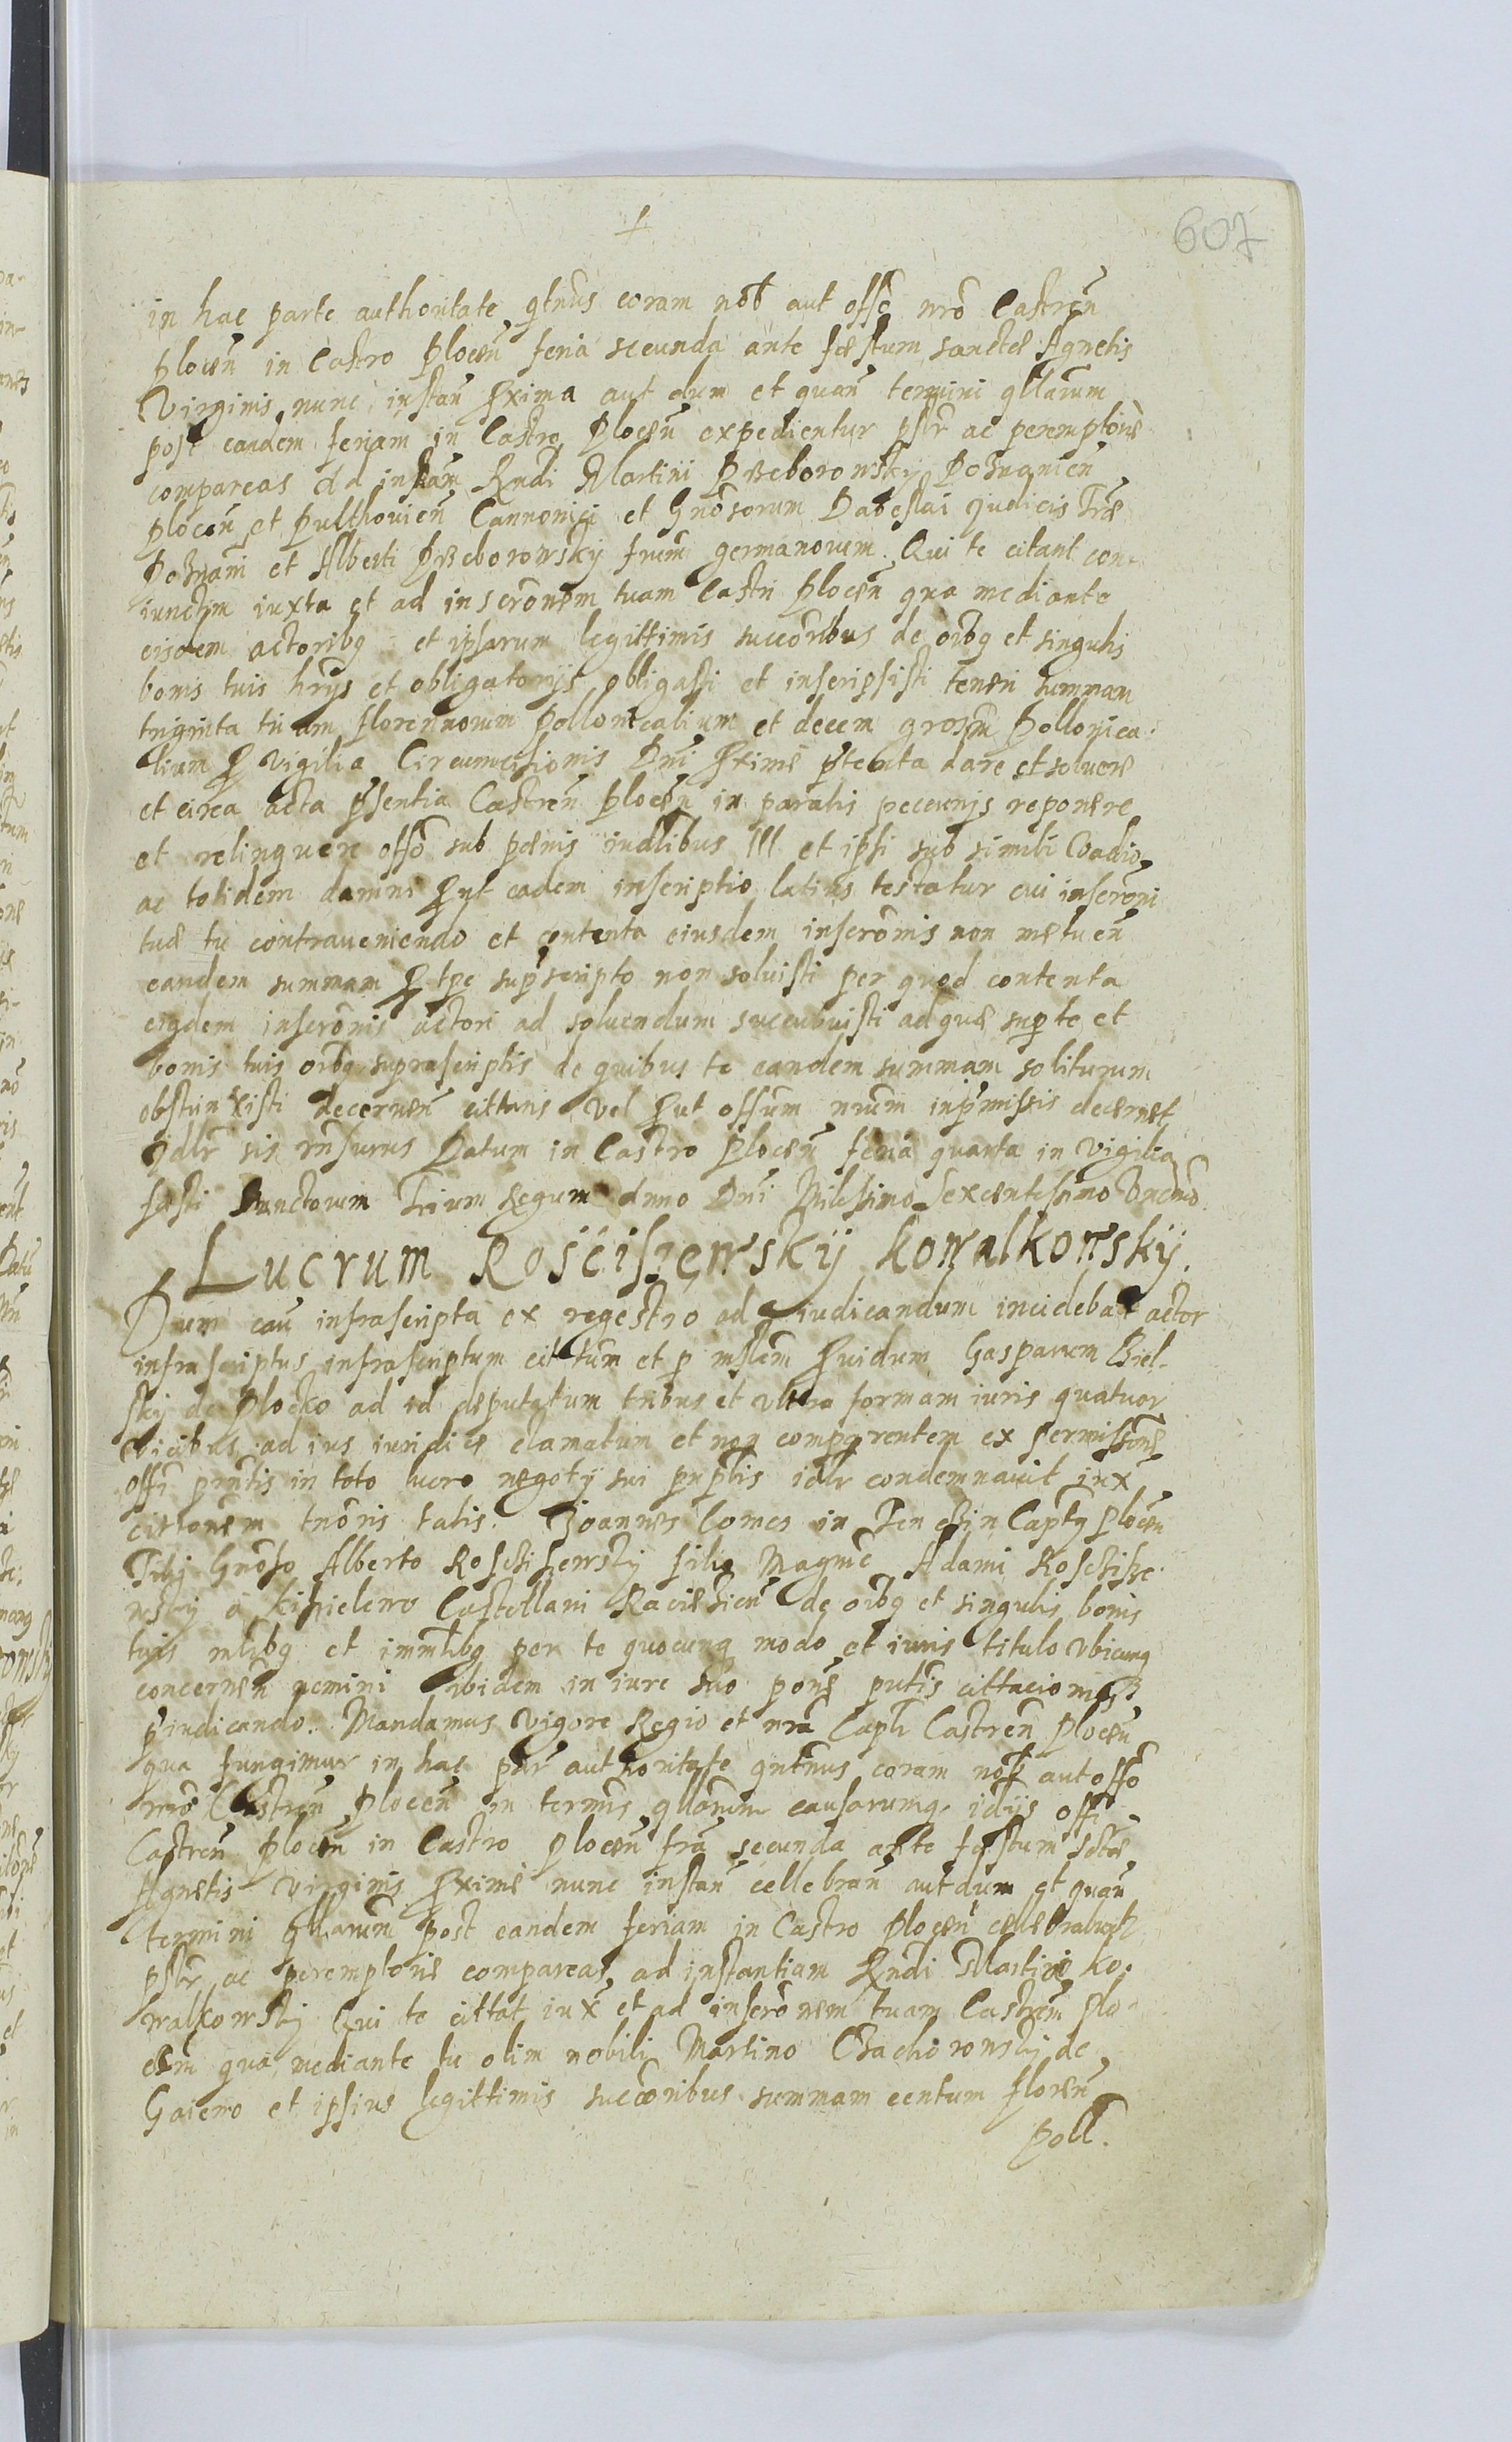 607
in hac parte authoritate qtnus coram nob aut offo nro Castren
plocen in Castro Plocen feria secunda ante festum sanctae Agnetis
Virginis nunc instan proxima aut dum et quan termini qllarum
post eandem feriam in Castro Plocen expedientur pslr ac peremptorie
compareas ad instam Rndi Martini Przeborowsky Poznanien
plocen et Pulthovien Cannonici et Gnosorum judicis Trae
Poznani et Alberti Przeborowsky frum germanorum. Qui te citant con-
iunctim iuxta et ad inscronem tuam Castri Plocen qua mediante
eisdem actoribq et ipsarum legittimis succoribus de oibq et singulis
bonis tuis hrijs et obligatorijs obligasti et inscripsisti teneri summam
triginta trium florennorum Pollonicalium et decem grosm Pollonica-
lium pro vigilia Circumcisionis Dni proxime ptenta dare et solvere
et circa acta psentia Castren plocen in paratis pecunijs reponere
et relinquere offo sub paenis iudlibus III et ipsi sub simili Vadio
ac totidem damni prout eadem inscriptio latius testatur cui inscroni
tuae tu contraveniendo et contenta eiusdem inscronis non metuen
eandem summam pro tpe suprscripto non solvisti per quod contenta
eigdem inscronis actori ad solvendum succubuisti ad quae super te et
bonis tuis oibq suprascriptis de quibus te eandem summam soliturum
obstrinxisti decernen cittaris vel prout offum nrum inpmissis decernet
Jdlr sis rnsurus Datum in Castro Plocen feria quarta in vigilia
festi Sanctorum Trium Regum Anno Dni Milessimo Sexcentesimo Undmo
Lucrum Rościszewskÿ Kowalkowskÿ.
Dum cau infrascripta ex regestro ad iudicandum incidebat actor
infrascriptus infrascriptum cittatum et p mslem providum Gasparum Biel-
sky de Plocko ad id deputatum tribus et ultra formam iuris quatuor
vicibus ad ius iuridice clamatum et non comparentem ex permissione
offi prntis in toto lucro negotÿ sui prnptis idlr condemnavit iux
cittonem tnoris talis. Joannes Comes in Tenczin Captq plocen
Tibj Gnoso Alberto Roschiszewsky filio Magnic Adami Roschisze-
wsky a Castellani Raciazien de oibq et singulis bonis
tuis mlibq et immlibq per te quocunq modo et iuris titulo ubicunq
concernen nemini ibidem in iure suo pone pntis cittacionis
piudicando. Mandamus vigore Regio et nra Capli Castren plocen
qua fungimur in hac par authoritate qntnus coram nob aut offo
nro Castren plocen in termis qllarum causarumq idijs offi
Castren plocen in Castro plocen fria secunda ante festum sctae
Agnetis virginis proxime nunc instan cellebran aut dum et quan
termini qllarum post eandem feriam in Castro plocen cellebrabunt
pslr ac peremptorie compareas ad instantiam Rndi Martini Ko-
walkowsky Qui te cittat iux et ad inscronem tuam Castrem plo-
cem qua mediante tu olim nobili Martino de
Gaiewo et ipsius legittimis succoribus summam centum floren
poll.